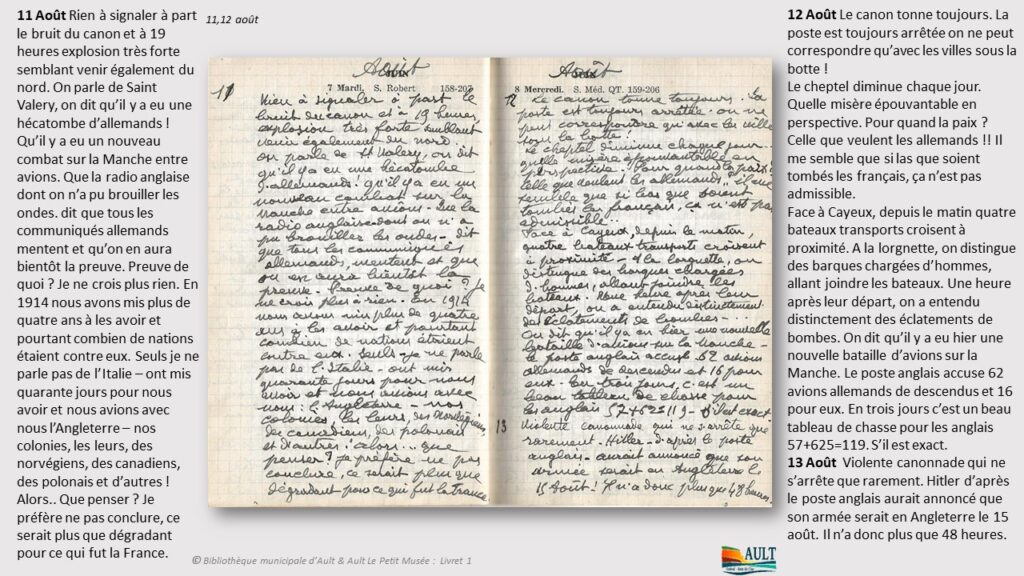 11 Août Rien à signaler à part
le bruit du canon et à 19
heures explosion très forte
semblant venir également du
nord. On parle de Saint
Valery, on dit qu'il y a eu une
hécatombe d'allemands !
Qu'il y a eu un nouveau
combat sur la Manche entre
avions. Que la radio anglaise
dont on n'a pu brouiller les
ondes. dit que tous les
communiqués allemands
mentent et qu'on en aura
bientôt la preuve. Preuve de
quoi ? Je ne crois plus rien. En
1914 nous avons mis plus de
quatre ans à les avoir et
pourtant combien de nations
étaient contre eux. Seuls je ne
parle pas de l'Italie – ont mis
quarante jours pour nous
avoir et nous avions avec
nous l'Angleterre – nos
colonies, les leurs, des
norvégiens, des canadiens,
des polonais et d'autres !
Alors.. Que penser ? Je
préfère ne pas conclure, ce
serait plus que dégradant
pour ce qui fut la France.
11,12 août
Août
7 Mardi. S. Robert 158-207
11 Rien à signaler à part le
bruit du canon et à 19 heures,
explosion très forte semblant
venir également du nord.
On parle de St Valery, on dit
qu'il y a eu une hécatombe
d'allemands! qu'il y a eu un
nouveau combat sur la
Manche entre avions. Que la
radio anglaise dont on n'a
pu brouiller les ondes - dit
que tous les communiqués
allemands, mentent et que
on en aura bientôt la
preuve. Preuve de quoi? Je
ne crois plus rien. En 1914
nous avons mis plus de quatre
ans à les avoir et pourtant
combien de nations étaient
contre eux. Seuls - je ne parle
pas de l'Italie - ont mis
quarante jours pour nous
avoir et nous avions avec
nous: l'Angleterre - nos
colonies, les leurs, des Norvégiens,
des canadiens, des polonais
et d'autres! alors... que
penser? je préfère ne pas
conclure, ce serait plus que
dégradant pour ce qui fut la France
Août
8 Mercredi. S. Méd. QT. 159-206
12 Le canon tonne toujours. La
poste est toujours arrêtée - on ne
peut correspondre qu'avec les villes
sous la botte!
Le cheptel diminue chaque jour.
quelle misère épouvantable en
perspective. Pour quand la paix?
Celle que veulent les allemands!! il me
semble que si las que soient
tombés les français, ça n'est pas
admissible..
Face à Cayeux, depuis le matin,
quatre bateaux transports croisent
à proximité - A la lorgnette, on
distingue des barques chargées
d'hommes, allant joindre les
bateaux. Une heure après leur
départ, on a entendu distinctement
des éclatements de bombes -
On dit qu'il y a eu hier une nouvelle
bataille d'avions sur la Manche -
le poste anglais accuse 62 avions
allemands de descendus et 16 pour
eux. En trois jours, c'est un
beau tableau de chasse pour
les anglais 57+62=119 - S'il est exact
13 Violente canonnade qui ne s'arrête que
rarement. Hitler - d'après le poste
anglais - aurait annoncé que son
armée serait en Angleterre le
15 Août! Il n'a donc plus que 48 heures.
12 Août Le canon tonne toujours. La
poste est toujours arrêtée on ne peut
correspondre qu'avec les villes sous la
botte !
Le cheptel diminue chaque jour.
Quelle misère épouvantable en
perspective. Pour quand la paix ?
Celle que veulent les allemands !! Il
me semble que si las que soient
tombés les français, ça n'est pas
admissible.
Face à Cayeux, depuis le matin quatre
bateaux transports croisent à
proximité. A la lorgnette, on distingue
des barques chargées d'hommes,
allant joindre les bateaux. Une heure
après leur départ, on a entendu
distinctement des éclatements de
bombes. On dit qu'il y a eu hier une
nouvelle bataille d'avions sur la
Manche. Le poste anglais accuse 62
avions allemands de descendus et 16
pour eux. En trois jours c'est un beau
tableau de chasse pour les anglais
57+625=119. S'il est exact.
13 Août Violente canonnade qui ne
s'arrête que rarement. Hitler d'après
le poste anglais aurait annoncé que
son armée serait en Angleterre le 15
août. Il n'a donc plus que 48 heures.
© Bibliothèque municipale d'Ault & Ault Le Petit Musée : Livret 1
AULT